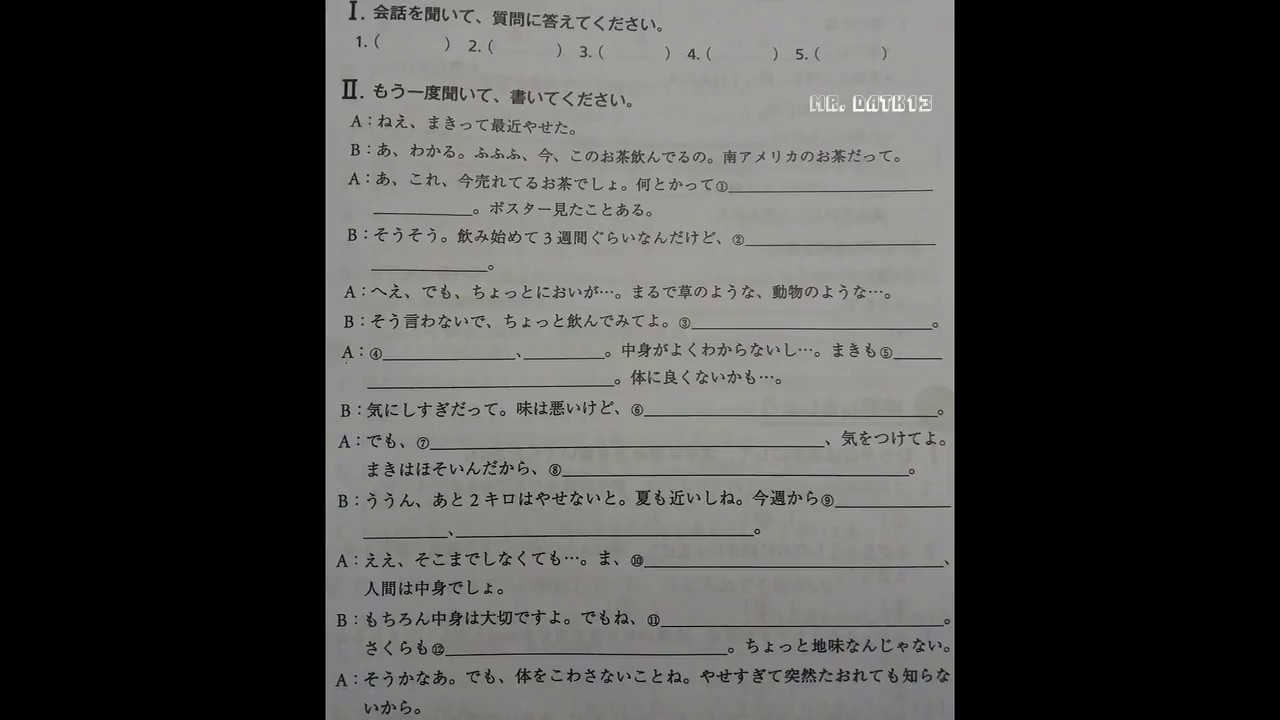 Ⅰ. 会話を聞いて、質問に答えてください。
1. (　　　) 2. (　　　) 3. (　　　) 4. (　　　) 5. (　　　)
Ⅱ. もう一度聞いて、書いてください。
MR. DATK13
A：ねえ、まきって最近やせた。
B：あ、わかる。ふふふ、今、このお茶飲んでるの。南アメリカのお茶だって。
A：あ、これ、今売れてるお茶でしょ。何とかって①＿＿＿＿＿＿＿＿
＿＿＿＿。ポスター見たことある。
B：そうそう。飲み始めて3週間ぐらいなんだけど、②＿＿＿＿＿＿＿＿
＿＿＿＿。
A：へえ、でも、ちょっとにおいが…。まるで草のような、動物のような…。
B：そう言わないで、ちょっと飲んでみてよ。③＿＿＿＿＿＿＿＿。
A：④＿＿＿＿＿、＿＿＿。中身がよくわからないし…。まきも⑤＿＿
＿＿＿＿＿＿＿＿。体に良くないかも…。
B：気にしすぎだって。味は悪いけど、⑥＿＿＿＿＿＿＿＿＿＿。
A：でも、⑦＿＿＿＿＿＿＿＿＿＿＿＿、気をつけてよ。
まきはほそいんだから、⑧＿＿＿＿＿＿＿＿＿＿。
B：ううん、あと2キロはやせないと。夏も近いしね。今週から⑨＿＿＿＿
＿＿＿、＿＿＿＿＿＿＿＿＿＿。
A：ええ、そこまでしなくても…。ま、⑩＿＿＿＿＿＿＿＿＿＿、
人間は中身でしょ。
B：もちろん中身は大切ですよ。でもね、⑪＿＿＿＿＿＿＿＿＿＿。
さくらも⑫＿＿＿＿＿＿＿＿＿＿。ちょっと地味なんじゃない。
A：そうかなあ。でも、体をこわさないことね。やせすぎて突然たおれても知らな
いから。